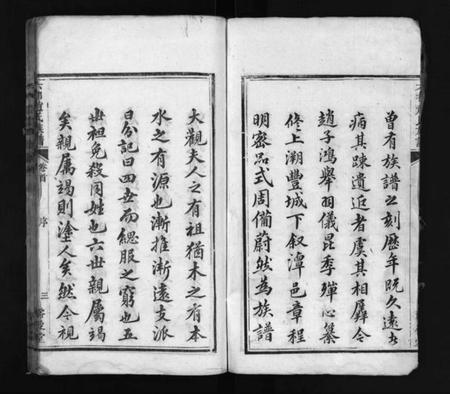 曾有族譜之刻歷年既久遠者
病其踈遺近者虞其相孱今
趙子鴻舉羽儀昆季殫心纂
修上溯豐城下叙潭邑章程
明密品式周備蔚然為族譜
大觀夫人之有祖猶木之有本
水之有源也漸推漸遠支派
日分記曰四世而緦服之窮也五
世袒免殺同姓也六世親屬竭
矣親屬竭則塗人矣然今視
卷首
序
三